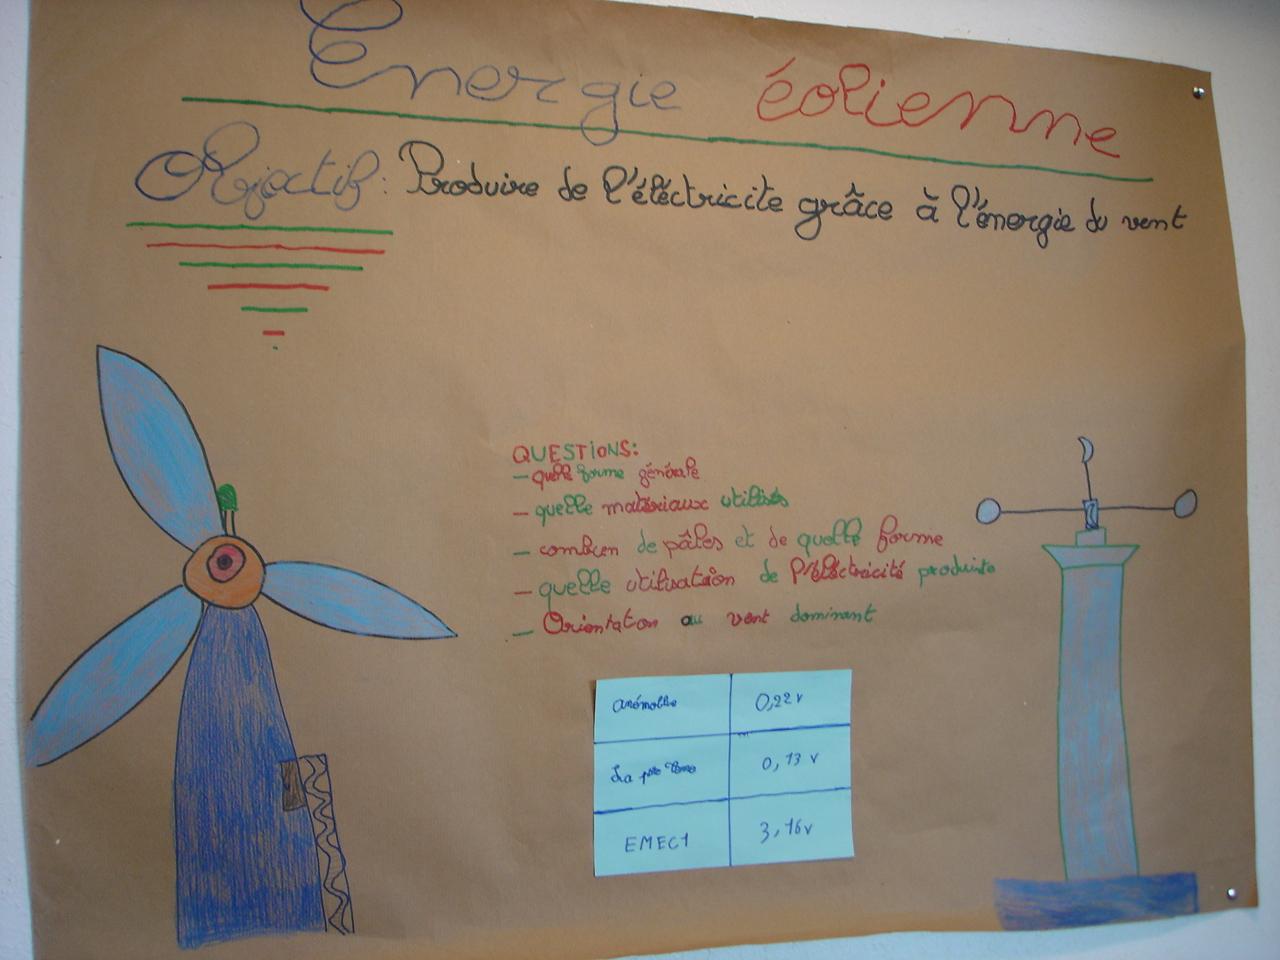 Energie éolienne
Objectif: Produire de l'éléctricite grâce à l'énergie du vent
QUESTIONS:
- quelle forme générale
- quelle matériaux utilisés
- combien de pâles et de quelle forme
- quelle utilisation de l'éléctricité produite
- Orientation au vent dominant
0,22 v
La 0,13 v
EMEC1 3,16v